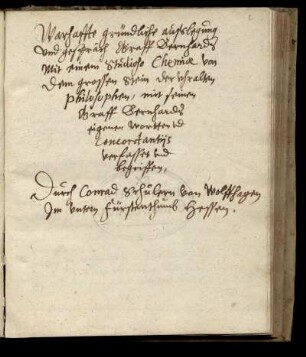 Warhaffte gründliche außlegung
Vnd gespräch Graff Bernhards
Mit einem Studioso Chemiæ von
Dem grossen Stein der Vhralten
Philosophen, mit seinen
Graff Bernhards
eigenen wortten vnd
Concordantijs
verfasset vnd
begriffen,
Durch Conrad Schulern von Wolffhagen
Im vntern Fürstenthumb Hessen.